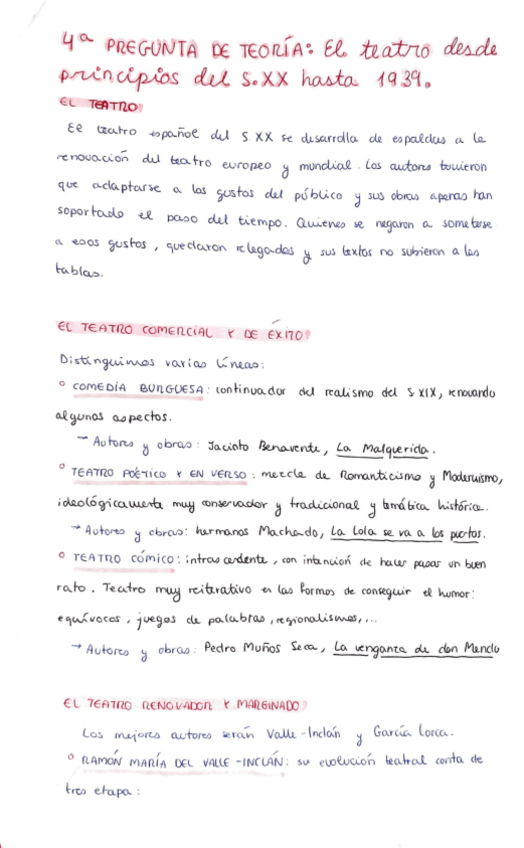 4ª PREGUNTA DE TEORÍA: El teatro desde
principios del S.XX hasta 1939.
EL TEATRO:
El teatro español del S XX se desarrolla de espaldas a la
renovación del teatro europeo y mundial. Los autores tuvieron
que adaptarse a los gustos del público y sus obras apenas han
soportado el paso del tiempo. Quienes se negaron a someterse
a esos gustos, quedaron relegados y sus textos no subieron a las
tablas.
EL TEATRO COMERCIAL Y DE ÉXITO:
Distinguimos varias líneas:
° COMEDIA BURGUESA: continuador del realismo del S XIX, renovando
algunos aspectos.
→ Autores y obras: Jacinto Benavente, La Malquerida.
° TEATRO POÉTICO Y EN VERSO: mezcla de Romanticismo y Modernismo,
ideológicamente muy conservador y tradicional y temática histórica.
→ Autores y obras: hermanos Machado, La Lola se va a los puertos.
° TEATRO CÓMICO: intrascendente, con intención de hacer pasar un buen
rato. Teatro muy reiterativo en las formas de conseguir el humor:
equívocos, juegos de palabras, regionalismos,...
→ Autores y obras: Pedro Muños Seca, La venganza de don Mendo
EL TEATRO RENOVADOR Y MARGINADO:
Los mejores autores serán Valle-Inclán y García Lorca.
° RAMÓN MARÍA DEL VALLE-INCLÁN: su evolución teatral conta de
tres etapa: